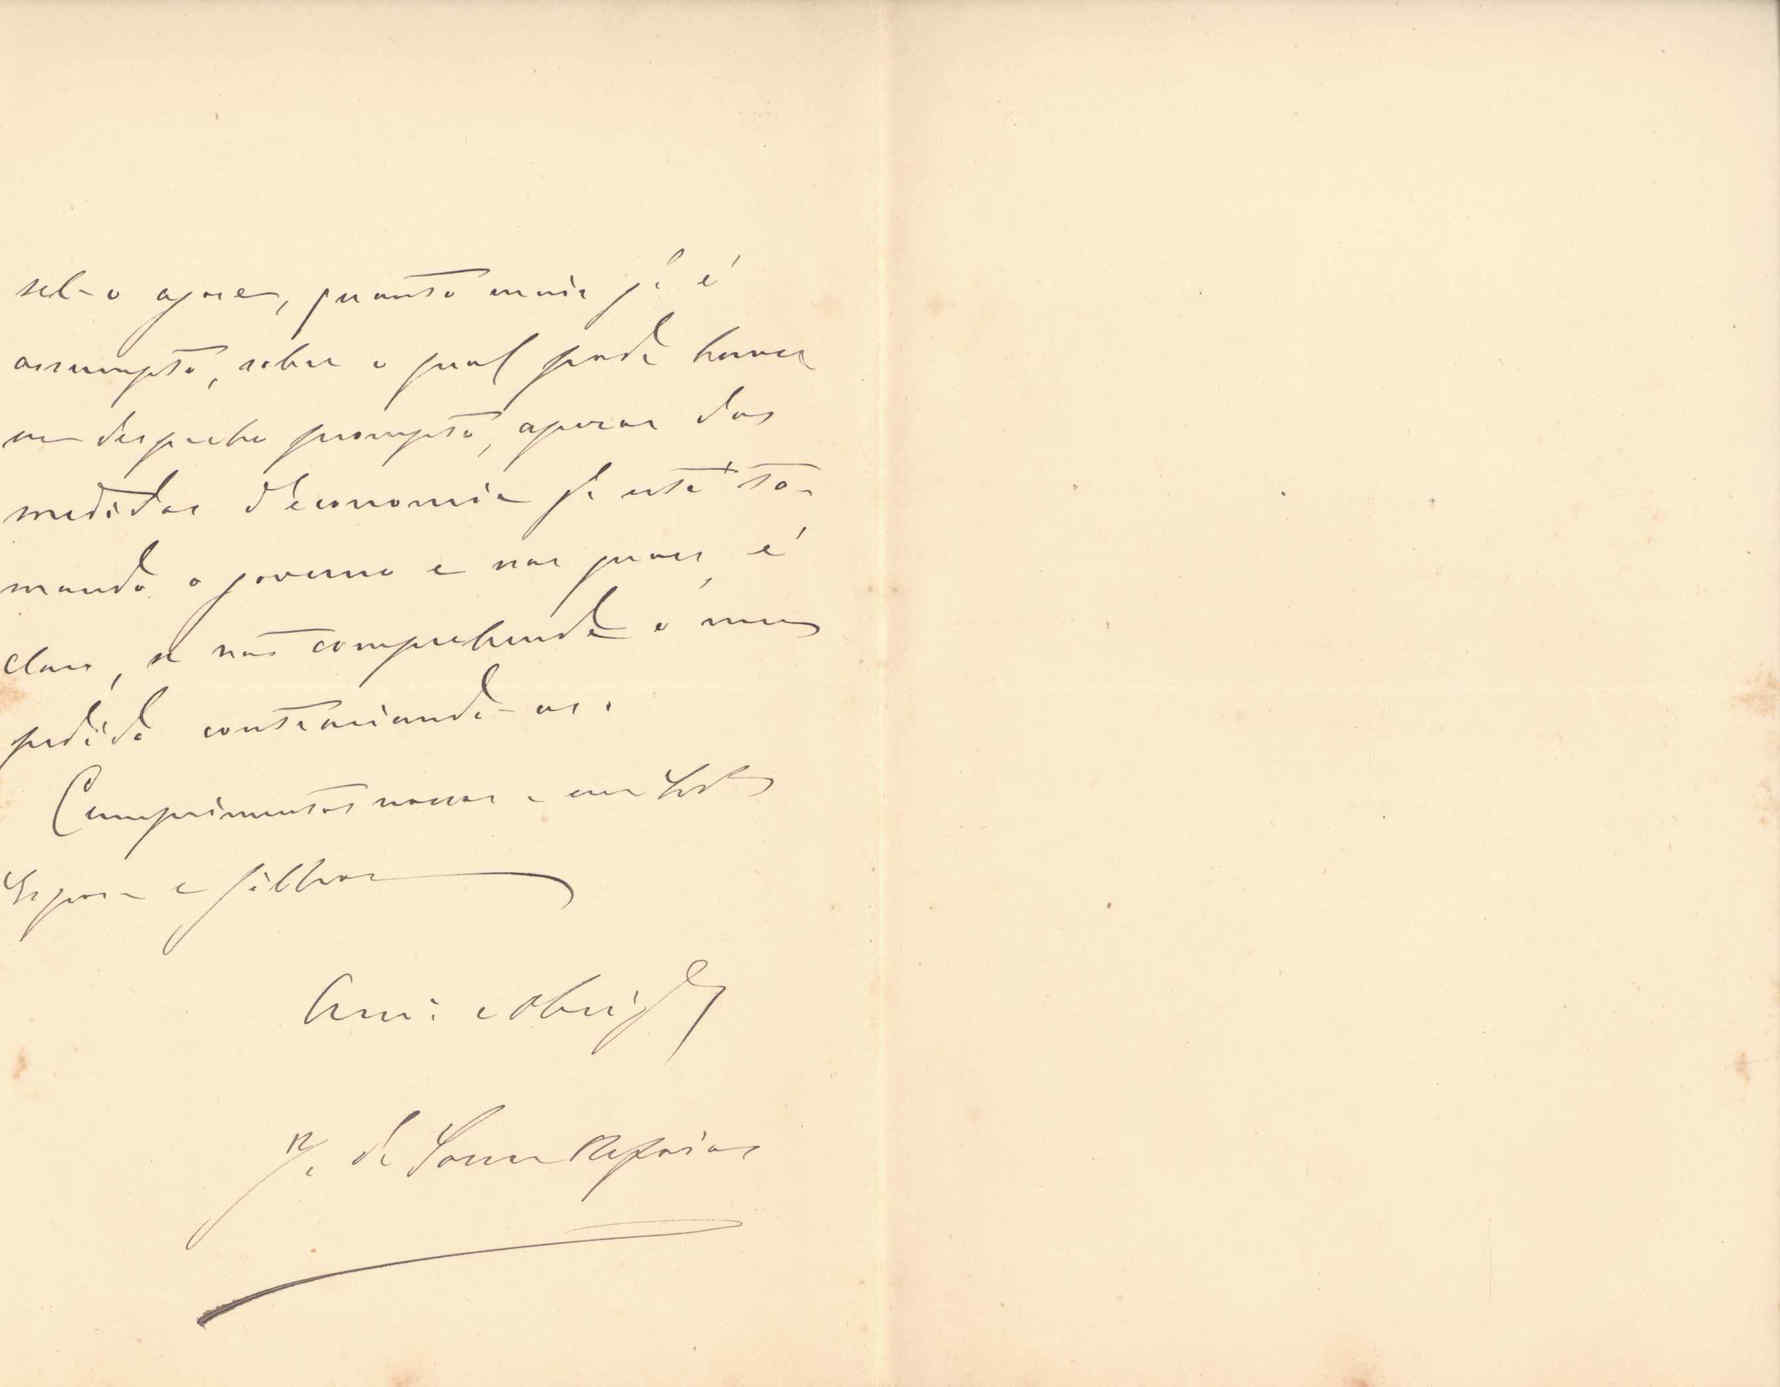 sel-o agora, quanto mais q' é
assumpto, sobre o qual pode haver
um despacho prompto, apesar das
medidas d'economia q' está to-
mando o governo e nas quaes, é
claro, se não comprehende o meu
pedido contrariando-as.
Cumprimentos nossos a em todos
Esposa e filhos
Am.º e Obrig.do
J. de Sousa